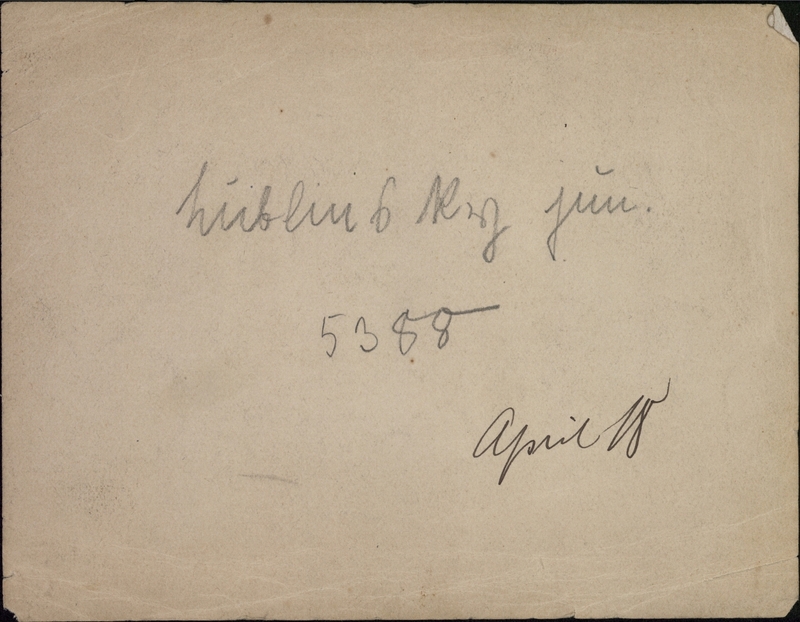 Lublinsky jun.
5388
April 18